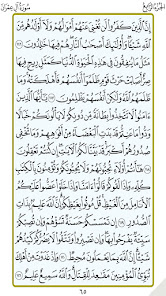 الجزء الرابع سورة آل عمران
إِنَّ ٱلَّذِينَ كَفَرُوا۟ لَن تُغْنِىَ عَنْهُمْ أَمْوَٰلُهُمْ وَلَآ أَوْلَٰدُهُم مِّنَ
ٱللَّهِ شَيْـًٔا وَأُو۟لَٰٓئِكَ أَصْحَٰبُ ٱلنَّارِ هُمْ فِيهَا خَٰلِدُونَ ١١٦
مَثَلُ مَا يُنفِقُونَ فِى هَٰذِهِ ٱلْحَيَوٰةِ ٱلدُّنْيَا كَمَثَلِ رِيحٍ فِيهَا
صِرٌّ أَصَابَتْ حَرْثَ قَوْمٍ ظَلَمُوٓا۟ أَنفُسَهُمْ فَأَهْلَكَتْهُ وَمَا
ظَلَمَهُمُ ٱللَّهُ وَلَٰكِنْ أَنفُسَهُمْ يَظْلِمُونَ ١١٧ يَٰٓأَيُّهَا ٱلَّذِينَ
ءَامَنُوا۟ لَا تَتَّخِذُوا۟ بِطَانَةً مِّن دُونِكُمْ لَا يَأْلُونَكُمْ خَبَالًا
وَدُّوا۟ مَا عَنِتُّمْ قَدْ بَدَتِ ٱلْبَغْضَآءُ مِنْ أَفْوَٰهِهِمْ وَمَا تُخْفِى
صُدُورُهُمْ أَكْبَرُ قَدْ بَيَّنَّا لَكُمُ ٱلْـَٔايَٰتِ إِن كُنتُمْ تَعْقِلُونَ ١١٨
هَٰٓأَنتُمْ أُو۟لَآءِ تُحِبُّونَهُمْ وَلَا يُحِبُّونَكُمْ وَتُؤْمِنُونَ بِٱلْكِتَٰبِ
كُلِّهِۦ وَإِذَا لَقُوكُمْ قَالُوٓا۟ ءَامَنَّا وَإِذَا خَلَوْا۟ عَضُّوا۟ عَلَيْكُمُ
ٱلْأَنَامِلَ مِنَ ٱلْغَيْظِ قُلْ مُوتُوا۟ بِغَيْظِكُمْ إِنَّ ٱللَّهَ عَلِيمٌۢ بِذَاتِ
ٱلصُّدُورِ ١١٩ إِن تَمْسَسْكُمْ حَسَنَةٌ تَسُؤْهُمْ وَإِن تُصِبْكُمْ
سَيِّئَةٌ يَفْرَحُوا۟ بِهَا وَإِن تَصْبِرُوا۟ وَتَتَّقُوا۟ لَا يَضُرُّكُمْ كَيْدُهُمْ
شَيْـًٔا إِنَّ ٱللَّهَ بِمَا يَعْمَلُونَ مُحِيطٌ ١٢٠ وَإِذْ غَدَوْتَ مِنْ أَهْلِكَ
تُبَوِّئُ ٱلْمُؤْمِنِينَ مَقَٰعِدَ لِلْقِتَالِ وَٱللَّهُ سَمِيعٌ عَلِيمٌ ١٢١
٦٥